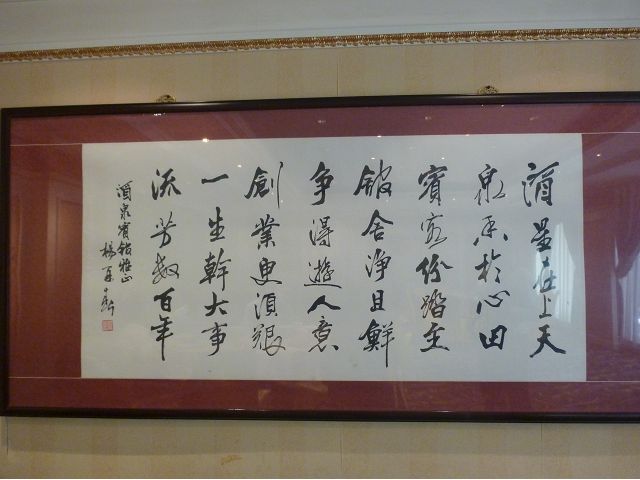 酒星在上天
泉於心田
賓客紛踏至
館舍淨且鮮
争得遊人意
創業更須艱
一生幹大事
流芳數百年
酒泉賓館雅正
楊